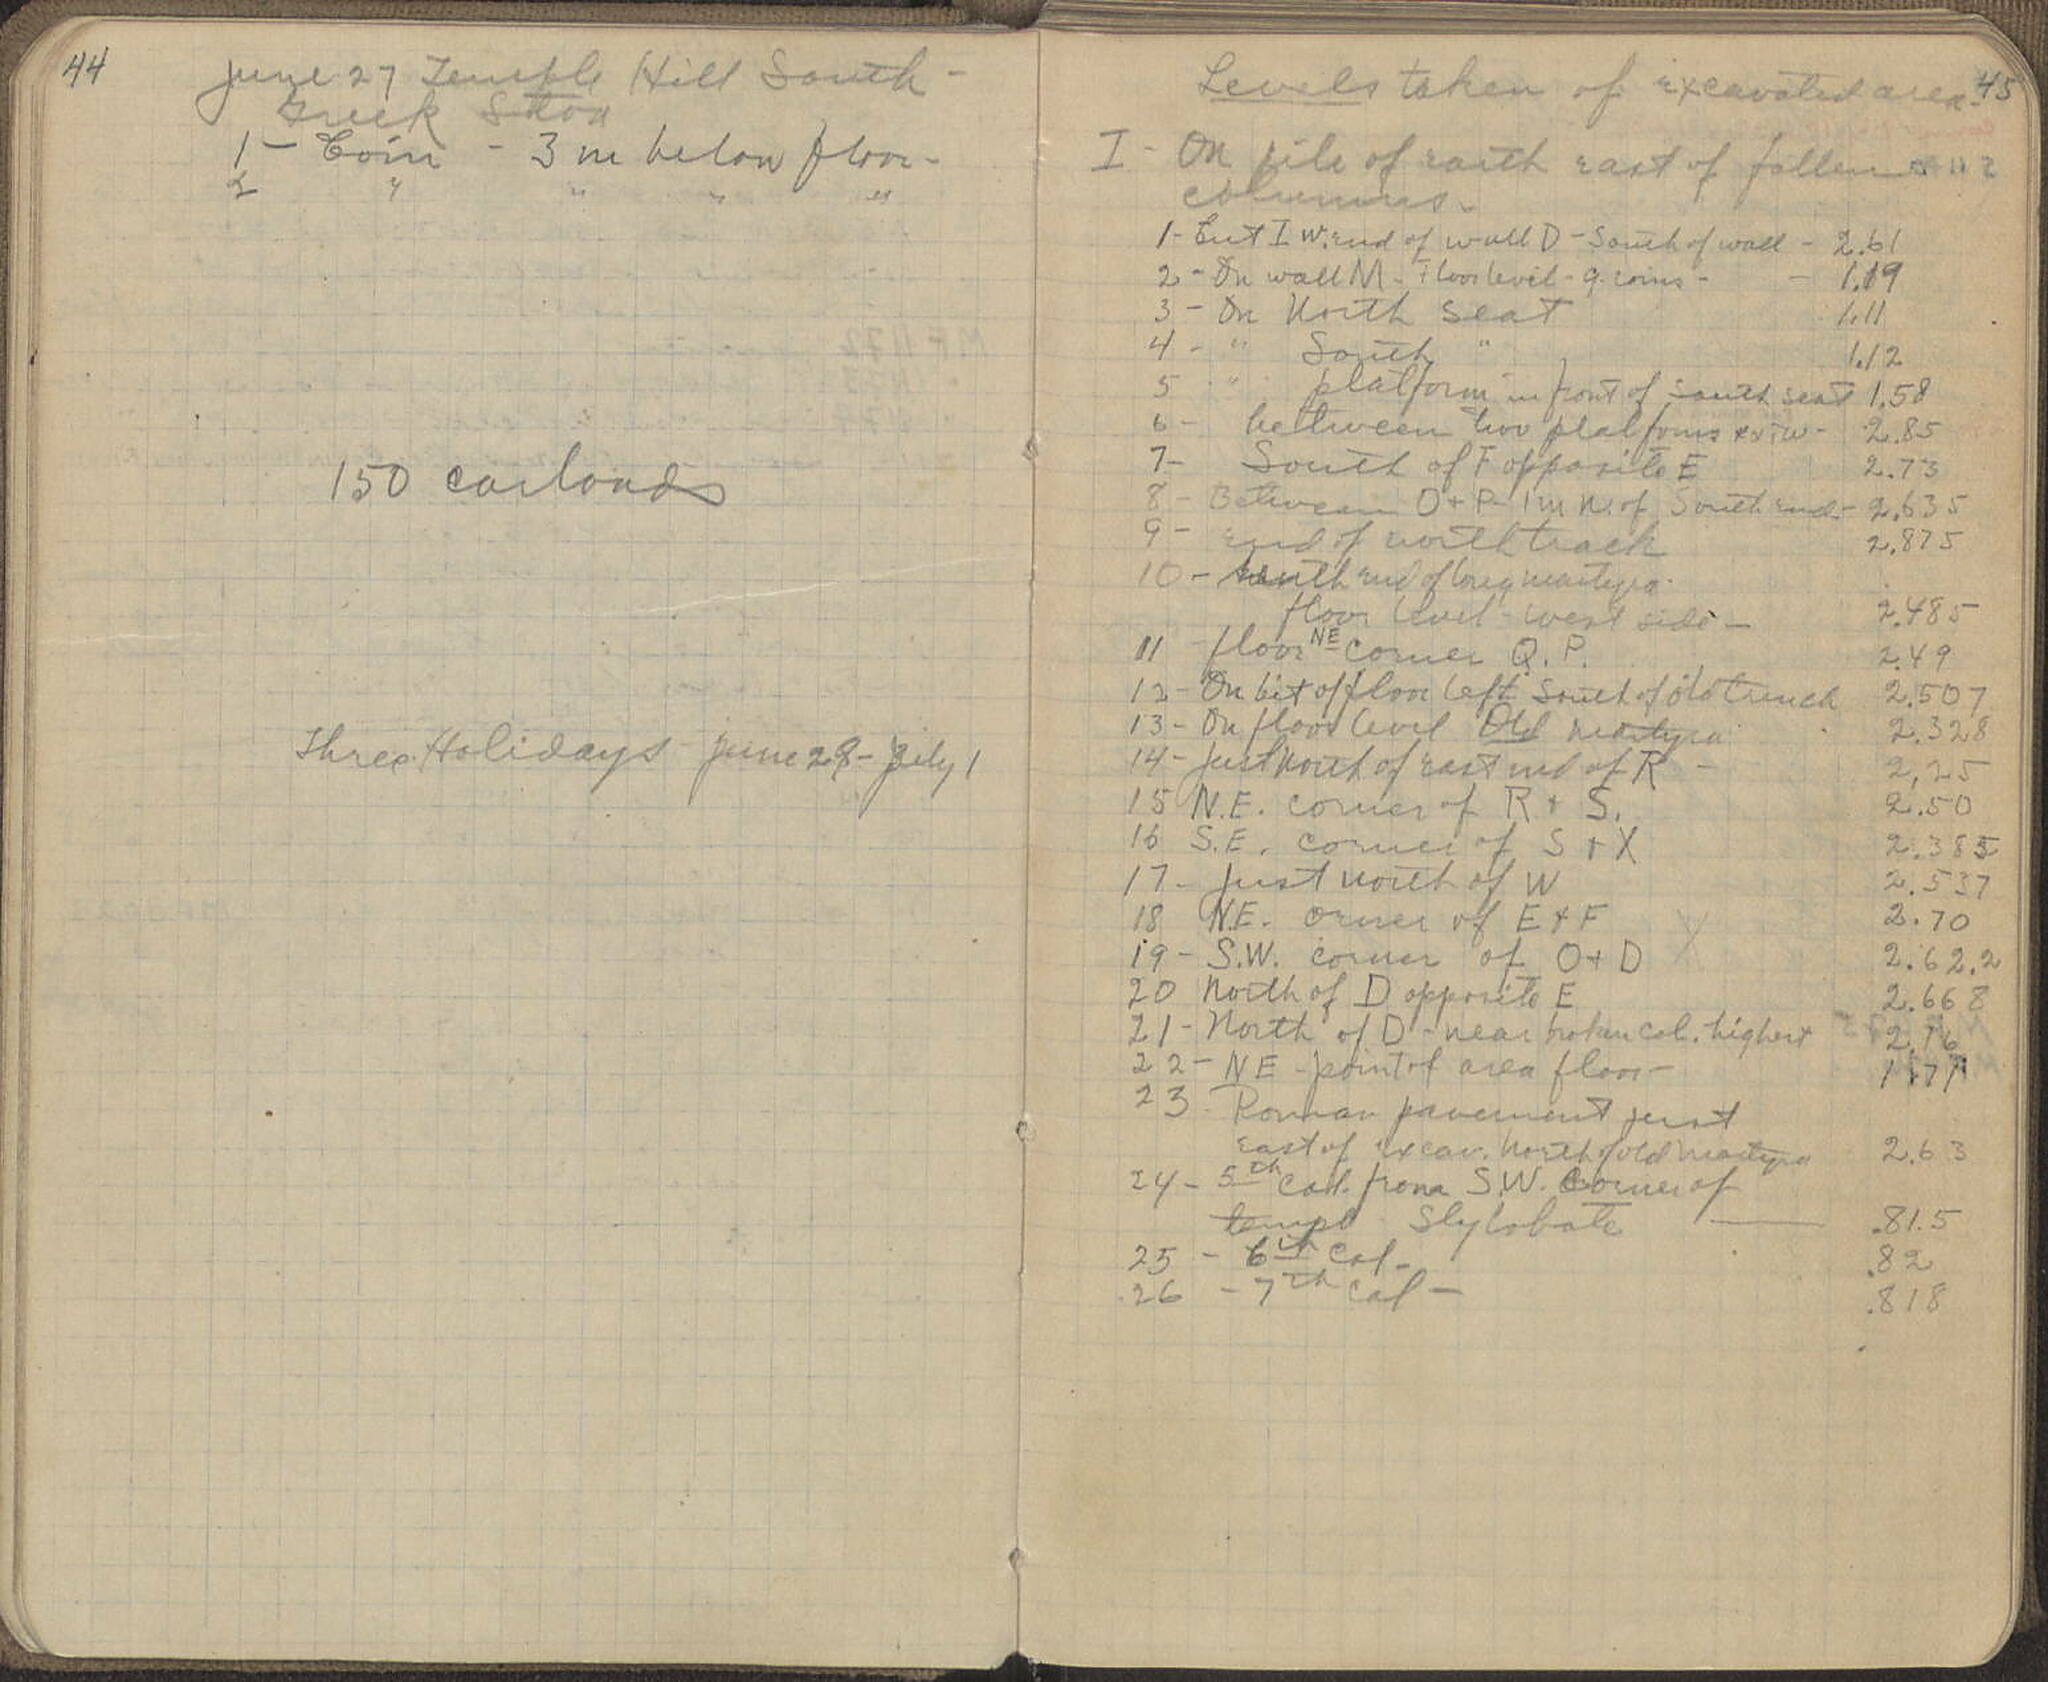 44
June 27 Temple Hill South -
Greek Stoa
1 - Coin - 3 m below floor -
2 " " " "
150 carloads
Three Holidays - June 29 - July 1
45
Levels taken of excavated area
I - On pile of earth east of fallen
columns -
1 - Ent I w. end of wall D - South of wall - 2.61
2 - On wall M - Floor level - 9 coins - - 1.19
3 - On North seat 1.11
4 - " South " 1.12
5 " platform in front of south seat 1.58
6 - between two platforms - 2.85
7 - South of F opposite E 2.73
8 - Between O + P - 1 m N. of South end - 2.635
9 - end of north track 2.875
10 - end of long martyra
floor level - west side - 2.485
11 floor NE corner Q. P. 2.49
12 - On bit of floor left South of old trench 2.507
13 - On floor level Old martyra 2.328
14 - Just North of east end of R - 2.25
15 N.E. corner of R + S. 2.50
16 S.E. corner of S + X 2.385
17 - Just north of W 2.537
18 N.E. orner of E + F 2.70
19 - S.W. corner of O + D 2.62.2
20 North of D opposite E 2.668
21 - North of D - near broken col. highest 2.76
22 - NE - point of area floor - 1.77
23 - Roman pavement just
east of excav. North of old martyra 2.63
24 - 5th Col. from S.W. Corner of
temple Stylobate .81.5
25 - 6th Col - .82
26 - 7th Col - .818